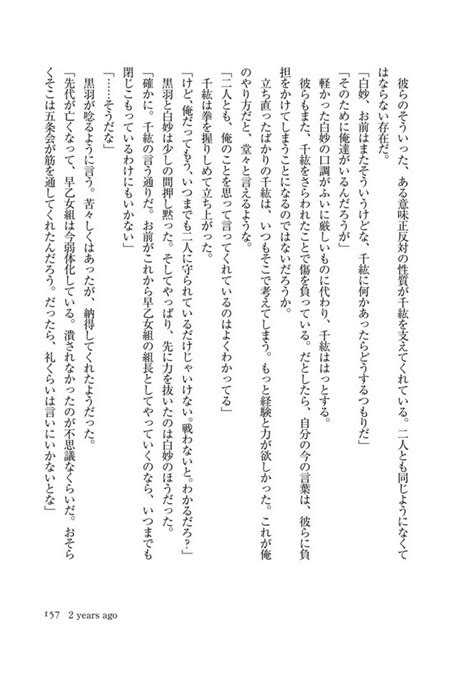 彼らのそういった、ある意味正反対の性質が千紘を支えてくれている。二人とも同じようになくて
はならない存在だ。
「白妙、お前はまたそういうけどな、千紘に何かあったらどうするつもりだ」
「そのために俺達がいるんだろうが」
軽かった白妙の口調がふいに厳しいものに代わり、千紘ははっとする。
彼らもまた、千紘をさらわれたことで傷を負っている。だとしたら、自分の今の言葉は、彼らに負
担をかけてしまうことになるのではないだろうか。
立ち直ったばかりの千紘は、いつもそこで考えてしまう。もっと経験と力が欲しかった。これが俺
のやり方だと、堂々と言えるような。
「二人とも、俺のことを思って言ってくれているのはよくわかってる」
千紘は拳を握りしめて立ち上がった。
「けど、俺だってもう、いつまでも二人に守られているだけじゃいけない。戦わないと。わかるだろ？」
黒羽と白妙は少しの間押し黙った。そしてやっぱり、先に力を抜いたのは白妙のほうだった。
「確かに。千紘の言う通りだ。お前がこれから早乙女組の組長としてやっていくのなら、いつまでも
閉じこもっているわけにもいかない」
「……そうだな」
黒羽が唸るように言う。苦々しくはあったが、納得してくれたようだった。
「先代が亡くなって、早乙女組は今弱体化している。潰されなかったのが不思議なくらいだ。おそら
くそこは五条会が筋を通してくれたんだろう。だったら、礼くらいは言いにいかないとな」
157 2 years ago